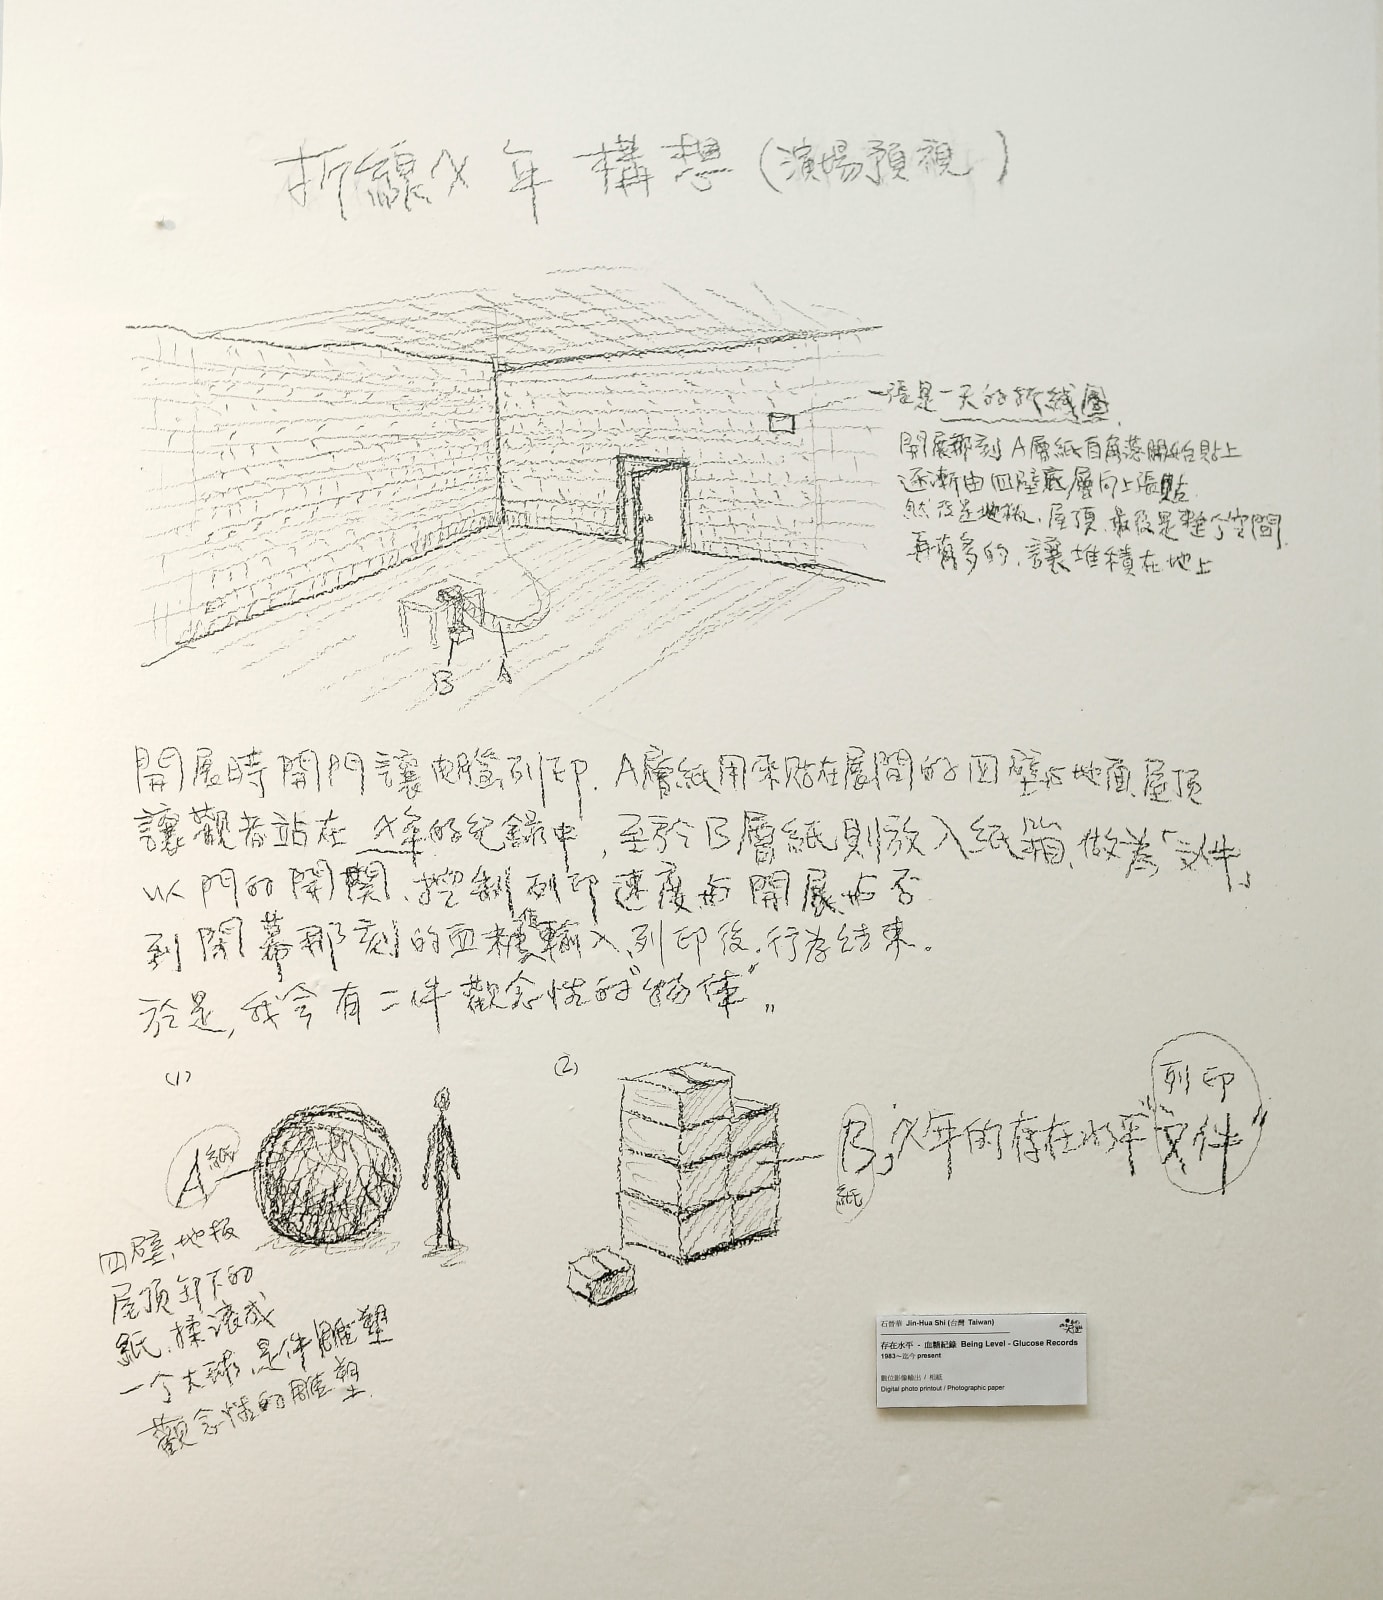 折線X年構想(演場預視)
一張是一天的折線圖
開展那刻 A層紙自角落開始貼上
逐漸由四壁底層向上張貼
然後是地板、屋頂.最後是整个空間.
再有多的.讓堆積在地上
B A
開展時開門讓電腦列印.A層紙用來貼在展間的四壁与地面.屋頂
讓觀者站在X年的紀錄中,至於B層紙則放入紙箱.做為「文件」
以門的開關.控制列印速度与開展与否
到閉幕那刻的血糖值輸入.列印後.行為結束。
於是,我会有二件觀念性的"物体"。
(1)
A紙
四壁、地板
屋頂卸下的
紙.揉滾成
一个大球.是件雕塑
觀念性的雕塑.
(2)
B紙
X年的存在水平"列印文件"
石晉華 Jin-Hua Shi (台灣 Taiwan)
存在水平 - 血糖紀錄 Being Level - Glucose Records
1983~迄今 present
數位影像輸出 / 相紙
Digital photo printout / Photographic paper